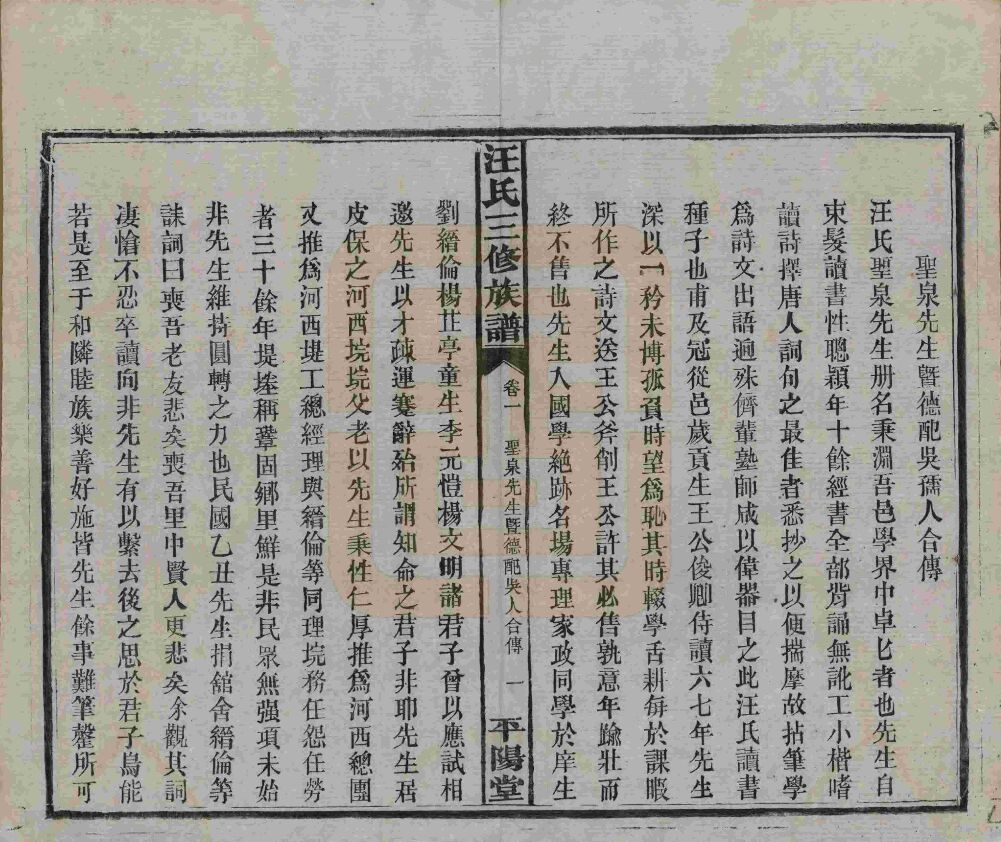 聖泉先生曁德配吳孺人合傳
汪氏聖泉先生册名秉淵吾邑學界中卓匕者也先生自
束髮讀書性聰穎年十餘經書全部背誦無訛工小楷嗜
讀詩擇唐人詞句之最佳者悉抄之以便揣摩故拈筆學
爲詩文出語逈殊儕輩塾師咸以偉器目之此汪氏讀書
種子也甫及冠從邑歲貢生王公俊卿侍讀六七年先生
深以一矜未博孤負時望爲恥其時輟學舌耕每於課暇
所作之詩文送王公斧削王公許其必售孰意年踰壯而
終不售也先生入國學絶跡名場專理家政同學於庠生
汪氏三修族譜
卷一
聖泉先生曁德配吳人合傳
一
平陽堂
劉縉倫楊芷亭童生李元愷楊文明諸君子曾以應試相
邀先生以才疎運蹇辭殆所謂知命之君子非耶先生居
皮保之河西垸垸父老以先生秉性仁厚推爲河西總團
又推爲河西堤工總經理與縉倫等同理垸務任怨任勞
者三十餘年堤塍稱鞏固鄉里鮮是非民眾無强項未始
非先生維持圓轉之力也民國乙丑先生捐舘舍縉倫等
誄詞曰喪吾老友悲矣喪吾里中賢人更悲矣余觀其詞
凄愴不忍卒讀向非先生有以繫去後之思於君子烏能
若是至于和隣睦族樂善好施皆先生餘事難筆罄所可